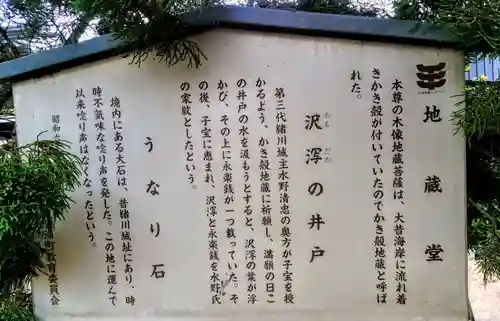 地蔵堂
本尊の木像地蔵菩薩は、大昔海岸に流れ着
きかき殻が付いていたのでかき殻地蔵と呼ば
れた。
沢瀉の井戸
おも だか
第三代緒川城主水野清忠の奥方が子宝を授
かるよう、かき殻地蔵に祈願し、満願の日こ
の井戸の水を汲もうとすると、沢瀉の葉が浮
かび、その上に永楽銭が一つ載っていた。そ
の後、子宝に恵まれ、沢瀉と永楽銭を水野氏
の家紋としたという。
うなり石
境内にある大石は、昔緒川城址にあり、時
時不気味な唸り声を発した。この地に運んで
以来唸り声はなくなったという。
昭和
教育委員会